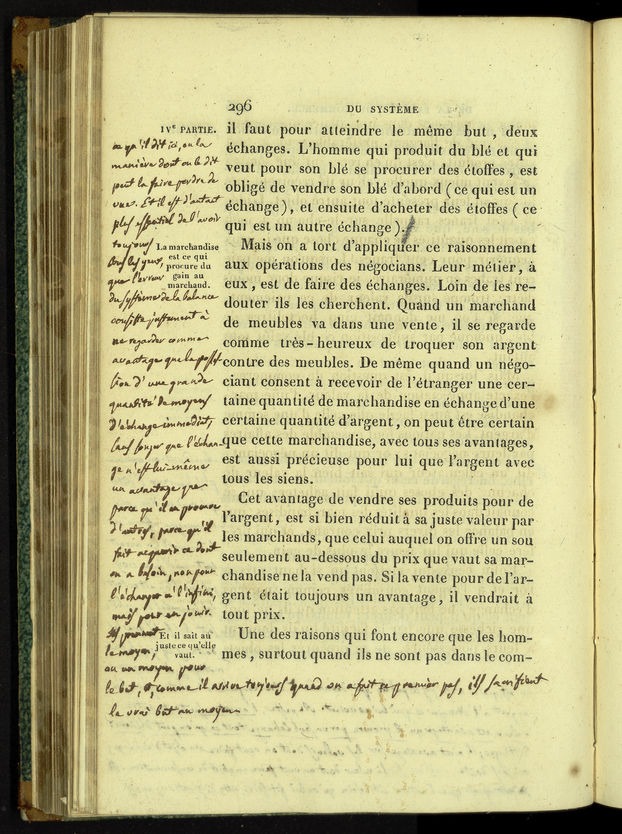 296 DU SYSTÈME
IVe PARTIE.
il faut pour atteindre le même but , deux
échanges. L'homme qui produit du blé et qui
veut pour son blé se procurer des étoffes , est
obligé de vendre son blé d'abord ( ce qui est un
échange ), et ensuite d'acheter des étoffes ( ce
qui est un autre échange ).
La marchandise
est ce qui
procure du
gain au
marchand.
Mais on a tort d'appliquer ce raisonnement
aux opérations des négocians. Leur métier, à
eux , est de faire des échanges. Loin de les re-
douter ils les cherchent. Quand un marchand
de meubles va dans une vente, il se regarde
comme très-heureux de troquer son argent
contre des meubles. De même quand un négo-
ciant consent à recevoir de l'étranger une cer-
taine quantité de marchandise en échange d'une
certaine quantité d'argent , on peut être certain
que cette marchandise, avec tous ses avantages,
est aussi précieuse pour lui que l'argent avec
tous les siens.
Cet avantage de vendre ses produits pour de
l'argent, est si bien réduit à sa juste valeur par
les marchands, que celui auquel on offre un sou
seulement au-dessous du prix que vaut sa mar-
chandise ne la vend pas. Si la vente pour de l'ar-
gent était toujours un avantage , il vendrait à
tout prix.
Et il sait au
juste ce qu'elle
vaut.
Une des raisons qui font encore que les hom-
mes , surtout quand ils ne sont pas dans le com-
ce qu'il dit ici, ou la
maniere dont on le dit
peut la faire perdre de
vue. Et il est d'autant
plus essentiel de l'avoir
toujours
sous les yeux,
que l'erreur
du systeme de la balance
consiste justement à
ne regarder comme
avantage que la posses-
sion d'une grande
quantité de moyens
d'échange immediat,
sans songer que l'échan-
ge n'est lui-même
un avantage que
parce qu'il en procure
d'autres, parce qu'il
fait acquerir ce dont
on a besoin, non pour
l'échanger à l'infini,
mais pour en jouir.
Ils prennent
le moyen,
ou un moyen pour
le but, et, comme il arrive toujours quand on a fait ce premier pas, ils sacrifient
le vrai but au moyen.